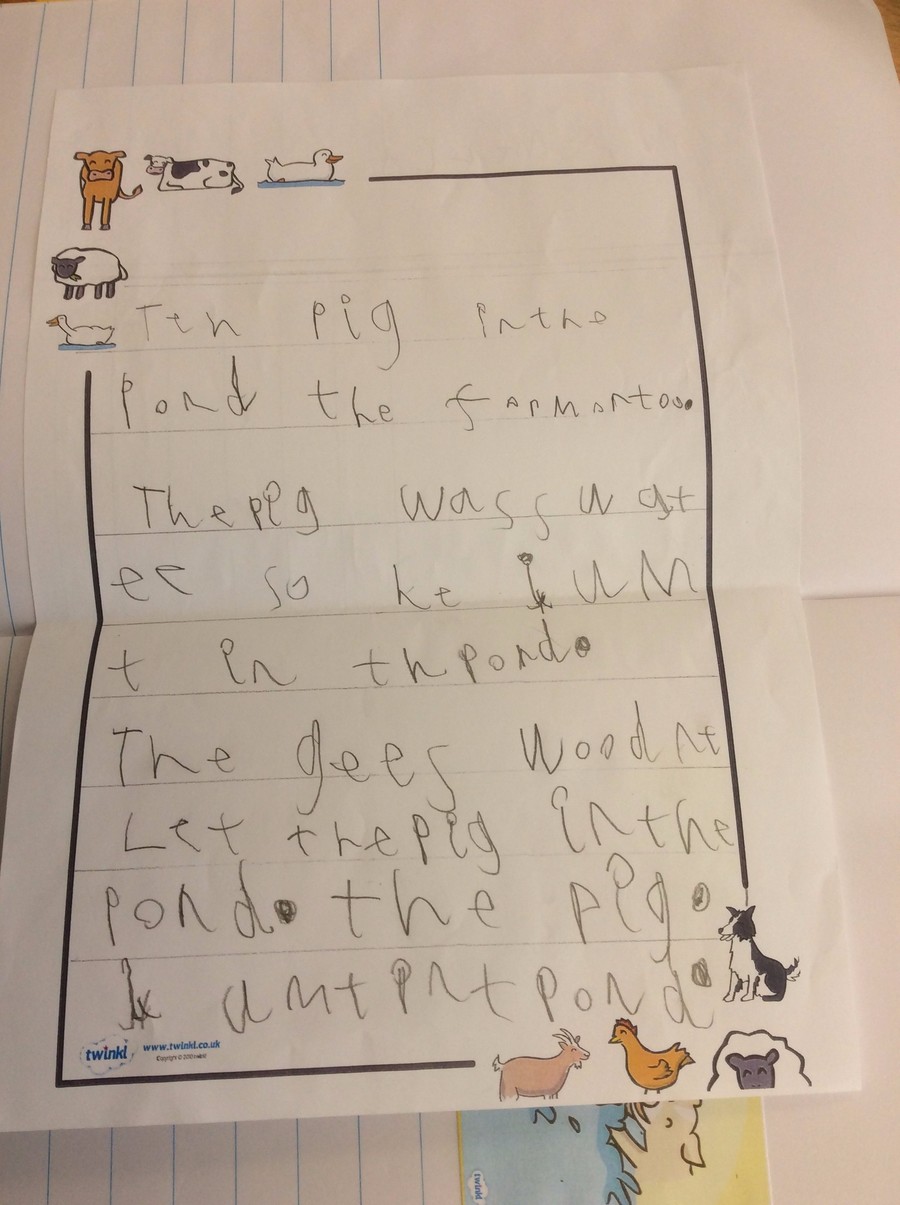 Ten pig inthe
Pond the farmartoo.
Thepig wass w at
ee so he JUM
t in thpond.
The gees Woodnt
Let thepig inthe
pond. the pig.
J umt int pond.
twinkl www.twinkl.co.uk
twinkl